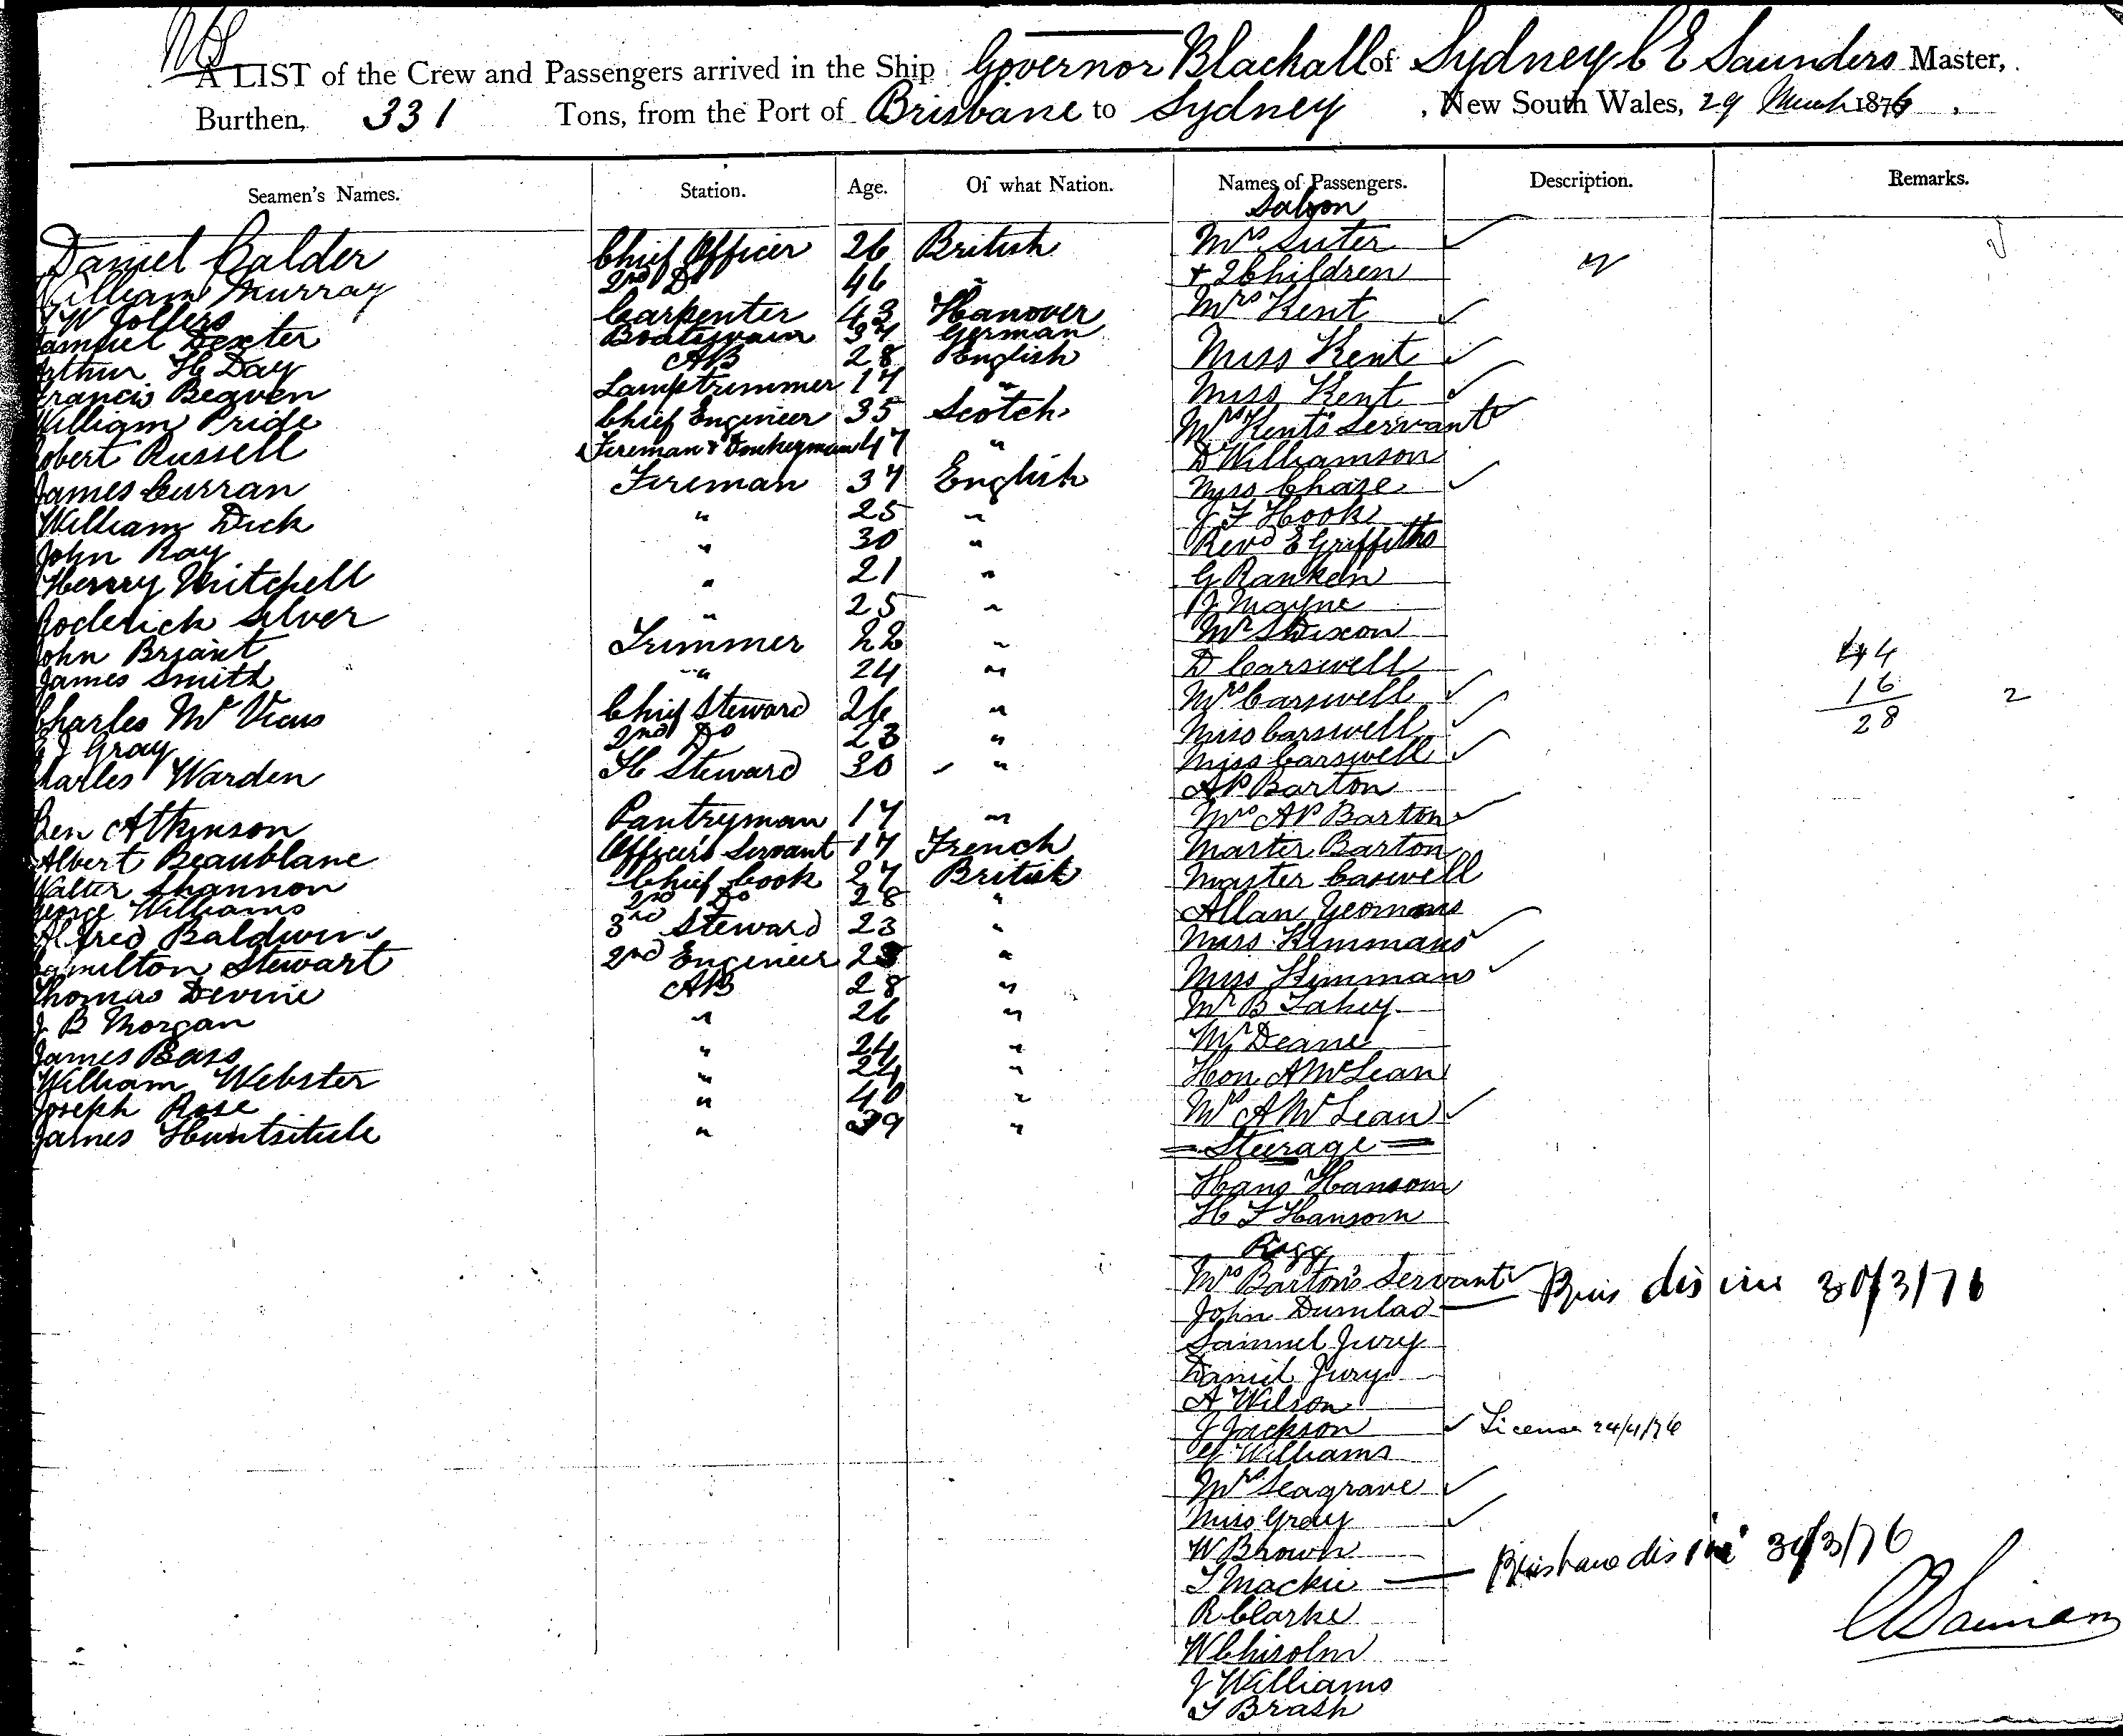 A LIST of the Crew and Passengers arrived in the Ship Governor Blackall of Sydney C E Saunders Master,
Burthen, 331 Tons, from the Port of Brisbane to Sydney, New South Wales, 29 March 1876
Seamen's Names. Station. Age. Of what Nation. Names of Passengers. Description. Remarks.
Saloon
Daniel Calder Chief Officer 26 British Mrs Suter
William Murray 2nd Do 46 " + 2 Children
J W Jolfers Carpenter 43 Hanover Mrs Kent
Samuel Dexter Boatswain 34 German
Arthur H Day AB 28 English Miss Kent
Francis Beaven Lamptrimmer 17 " Miss Kent
William Pride Chief Engineer 35 Scotch Mrs Kent's Servant
Robert Russell Fireman & Donkeyman 47 " D Williamson
James Curran Fireman 37 English Miss Chase
William Dick " 25 " J F Hook
John Ray " 30 " Revd E Griffiths
Henry Mitchell " 21 " G Ranken
Roderick Silver " 25 " J Mayne
John Briant Trimmer 22 " Mr S Dixon
James Smith " 24 " D Carswell
44
Charles Mc Vicus Chief Steward 26 " Mrs Carswell
16
E J Gray 2nd Do 23 " Miss Carswell
28 2
Charles Warden H Steward 30 " Miss Carswell
A P Barton
Ben Atkinson Pantryman 17 " Mrs A P Barton
Albert Beaublane Officers Servant 17 French Master Barton
Walter Shannon Chief Cook 27 British Master Caswell
George Williams 2nd Do 28 " Allan Yeomans
Alfred Baldwin 3rd Steward 23 " Miss Kimmans
Hamilton Stewart 2nd Engineer 25 " Miss Kimmans
Thomas Devine AB 28 " Mr B Fahey
J B Morgan " 26 " Mr Deane
James Bass " 24 " Hon A McLean
William Webster " 24 "
Joseph Rose " 40 " Mrs A McLean
James Huntsitule " 39 " = Steerage =
Hans Hansom
H F Hansom
Rigg
Mrs Barton's Servant
John Dumlad — Bris dis ine 30/3/76
Samuel Jury
Daniel Jury
A Wilson
J Jackson License 24/4/76
G Williams
Mrs Seagrave
Miss Gray
W Brown
T Mackie — Brisbane dis ine 30/3/76
R Clarke
W Chisolm
J Williams
T Brash